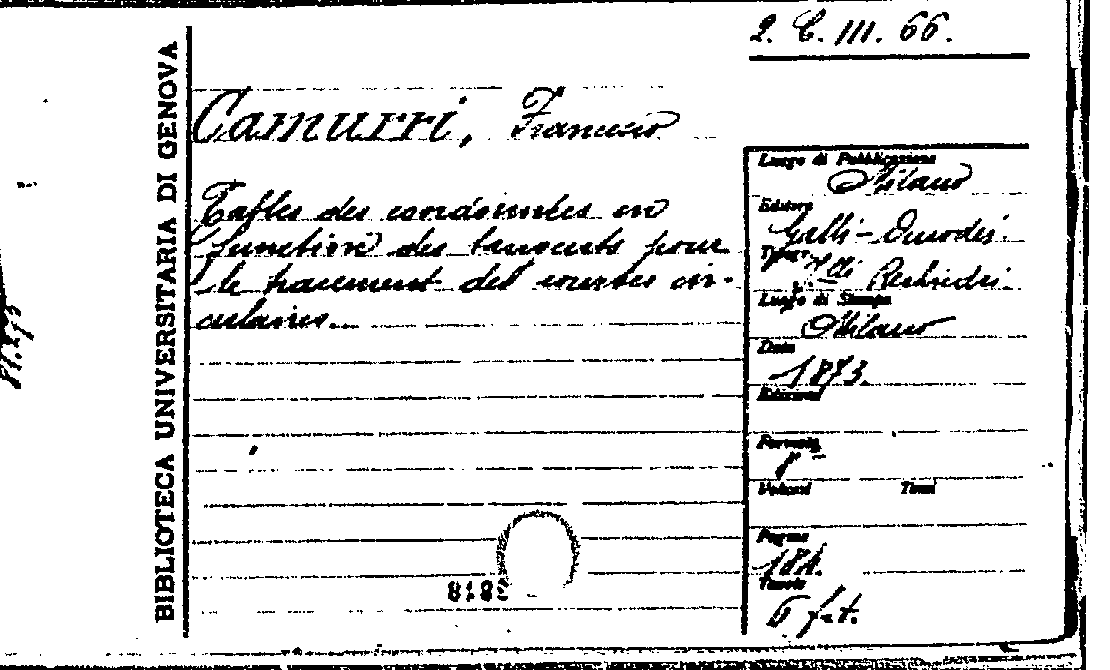 2. C. III. 66.
BIBLIOTECA UNIVERSITARIA DI GENOVA
Camurri, Francesco
Tables des coordonnées en
function des tangents pour
le tracement des courbes cir-
culaires.
Luogo di Pubblicazione
Milano
Editore
Galli-Omodei.
Tipogr.
Luogo di Stampa
Milano
Data
1873.
Edizione
Formato
Volumi Tomi
Pagine
184.
Tavole
6 f.t.
8182